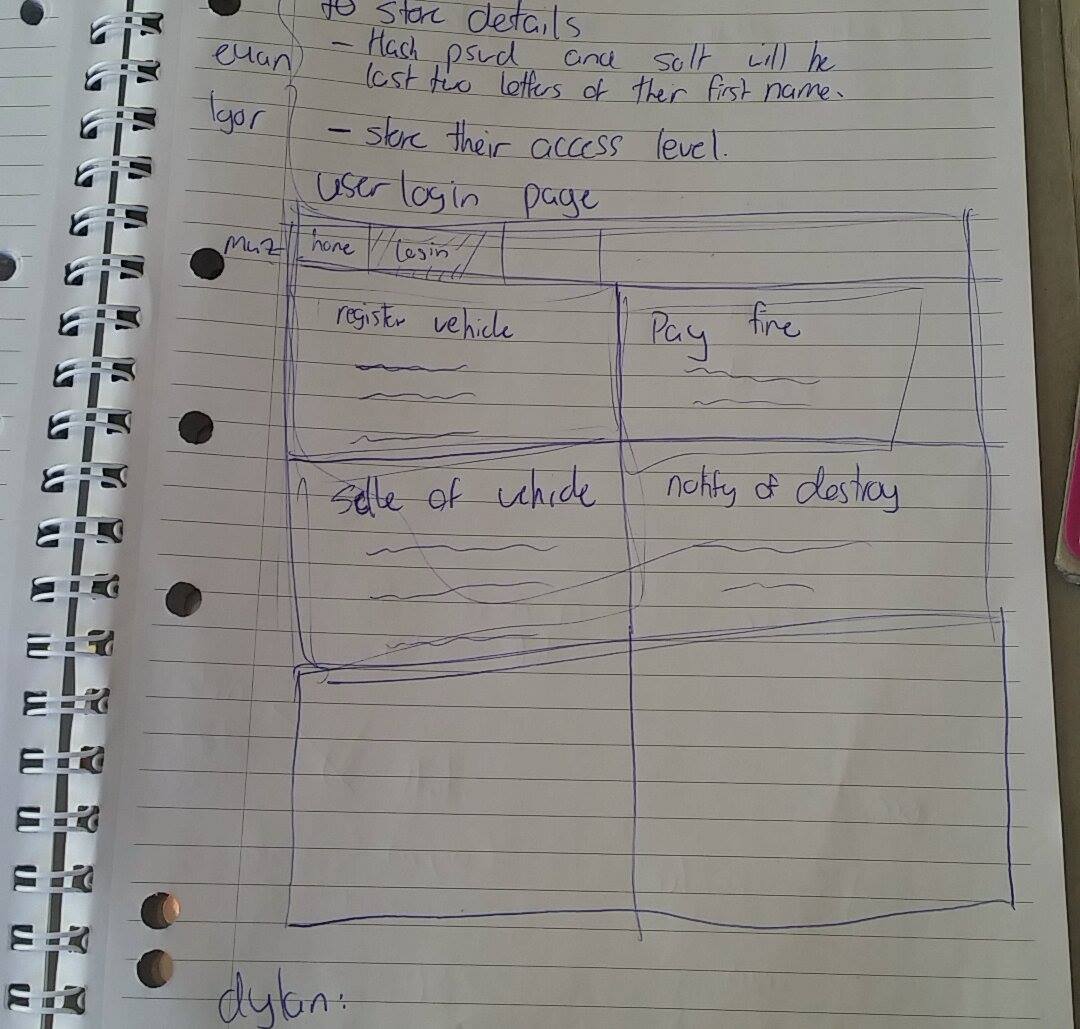 to store details
euan
- Hash pswd and salt will be
last two letters of ther first name.
Igor
- store their access level.
user login page
Muz
home
login
register vehicle
Pay fine
Selle of vehicle
notify of destroy
dylan: